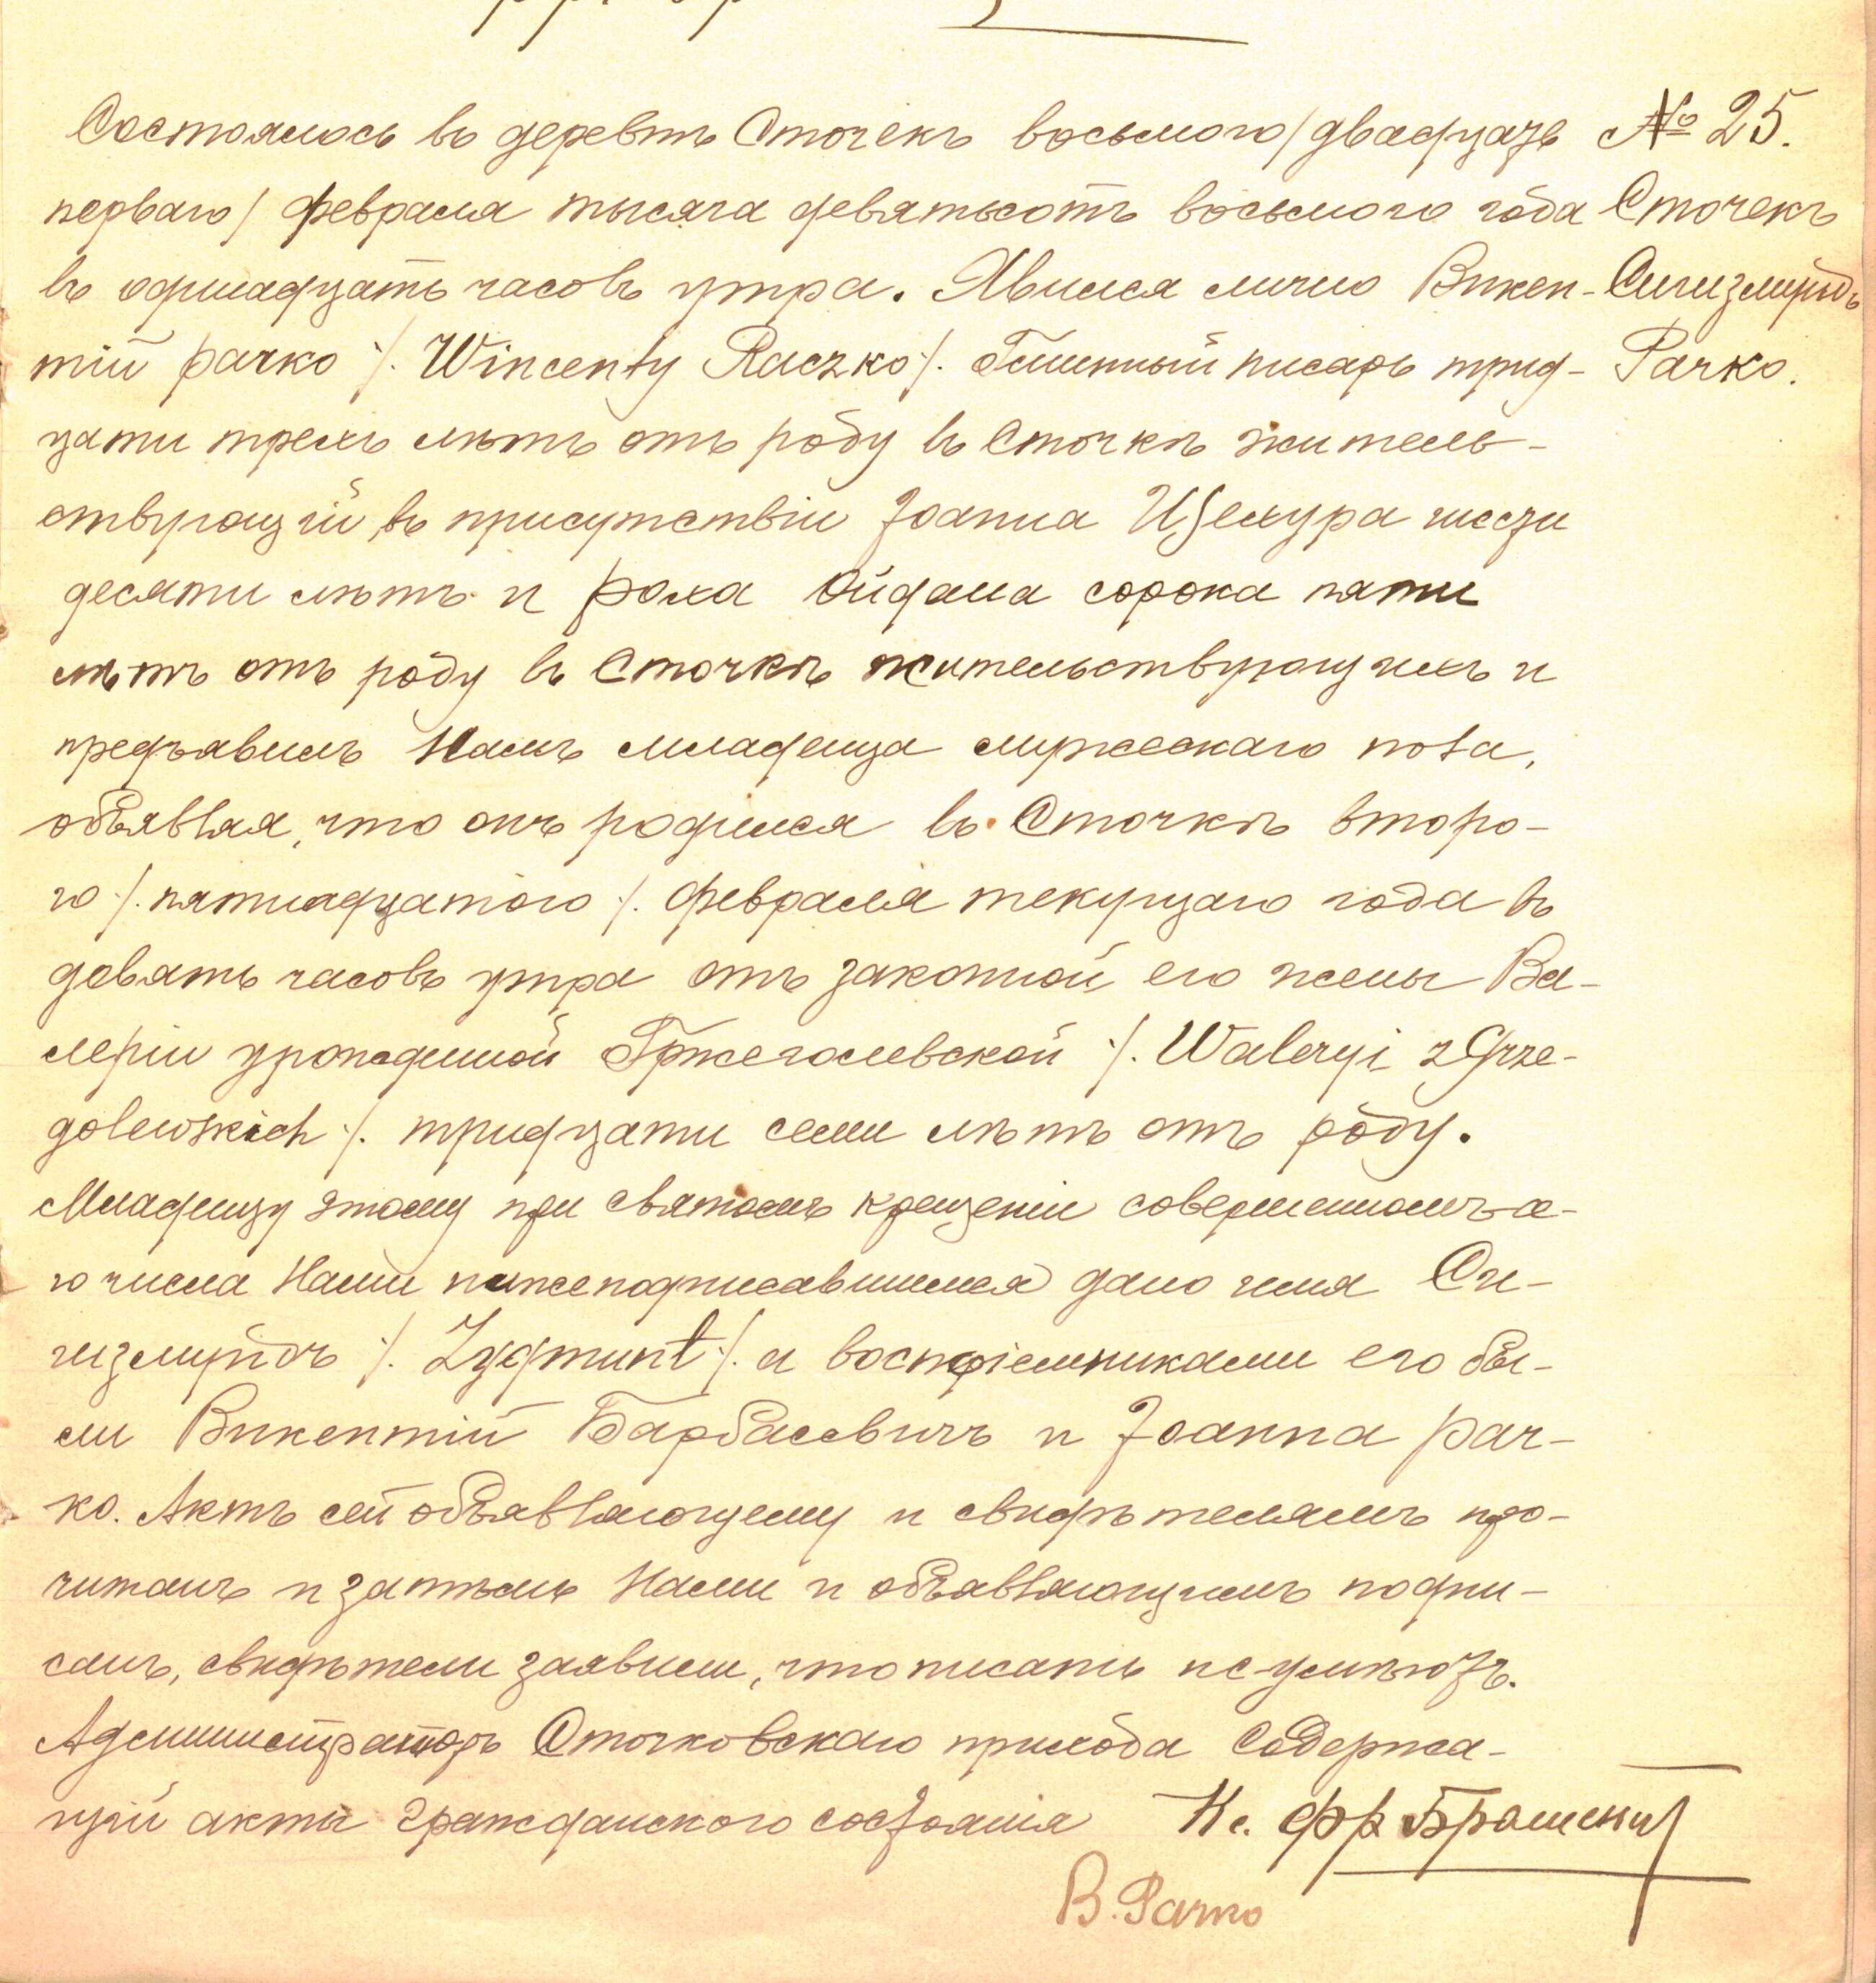 Состоялось въ деревнѣ Сточекъ восьмого/двадцать
перваго/ февраля тысяча девятьсотъ восьмого года
въ одинадцать часовъ утра. Явился лично Викен-
тій Рачко /. Wincenty Raczko /. Гминный писарь трид-
цати трехъ лѣтъ отъ роду въ Сточкѣ житель-
ствующій, въ присутствіи Іоанна шести
десяти лѣтъ и Роха Ойдана сорока пяти
лѣтъ отъ роду въ Сточкѣ жительствующихъ и
предъявилъ Намъ младенца мужескаго пола,
объявляя, что онъ родился въ Сточкѣ второ-
го /. пятнадцатого /. февраля текущаго года въ
девять часовъ утра отъ законной его жены Ва-
леріи урожденной Гржеголевской /. Waleryi z Grze-
golewskich /. тридцати семи лѣтъ отъ роду.
Младенцу этому при святомъ крещеніи совершенномъ
го числа Нами нижеподписавшимся дано имя Си-
гизмундъ /. Zygmunt /. а воспріемниками его бы-
ли Викентій Барбасевичъ и Іоанна Рач-
ко. Актъ сей объявляющему и свидѣтелямъ про-
читанъ и затѣмъ Нами и объявляющимъ подпи-
санъ, свидѣтели заявили, что писать не умѣютъ.
Администраторъ Сточковскаго прихода Содержа-
щій акты гражданского состоянія Кс. Фр.
В. Рачко
№ 25.
Сточекъ
Сигизмундъ
Рачко.